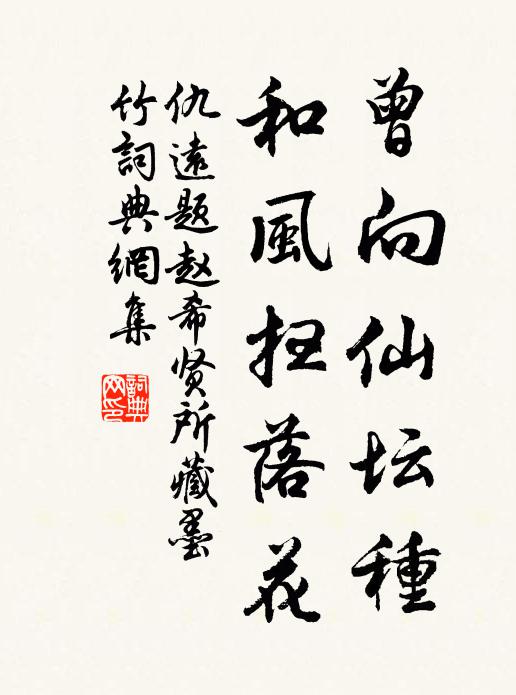 曾向仙坛種
和風扫落花
仇遠题赵希贤所藏墨
竹詞典網集
詞典网印